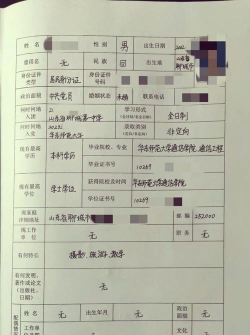 姓名 性别 男 出生日期
曾用名 无 民族 出生地
身份证件类型 居民身份证 身份证件号码
政治面貌 中共党员 婚姻状态 未婚 联系电话
何时何地入团 山东省聊城第一中学 学习形式 全日制
何时何地入党 华东师范大学 录取类别 非定向
现有最高学历 本科学历 毕业院校、专业 华东师范大学通信学院,通信工程
毕业证书号 10269
现有最高学位 学士学位 获得院校及时间 华东师范大学通信学院
学位证书号 10269
家庭详细地址 山东省聊城市 邮编 252000
现工作单位 无 职务 无
有何特长 摄影、旅游、数学
有何发明,著作或论文(出版社、日期) 无
姓名 无 出生年月 无 政治面貌 无